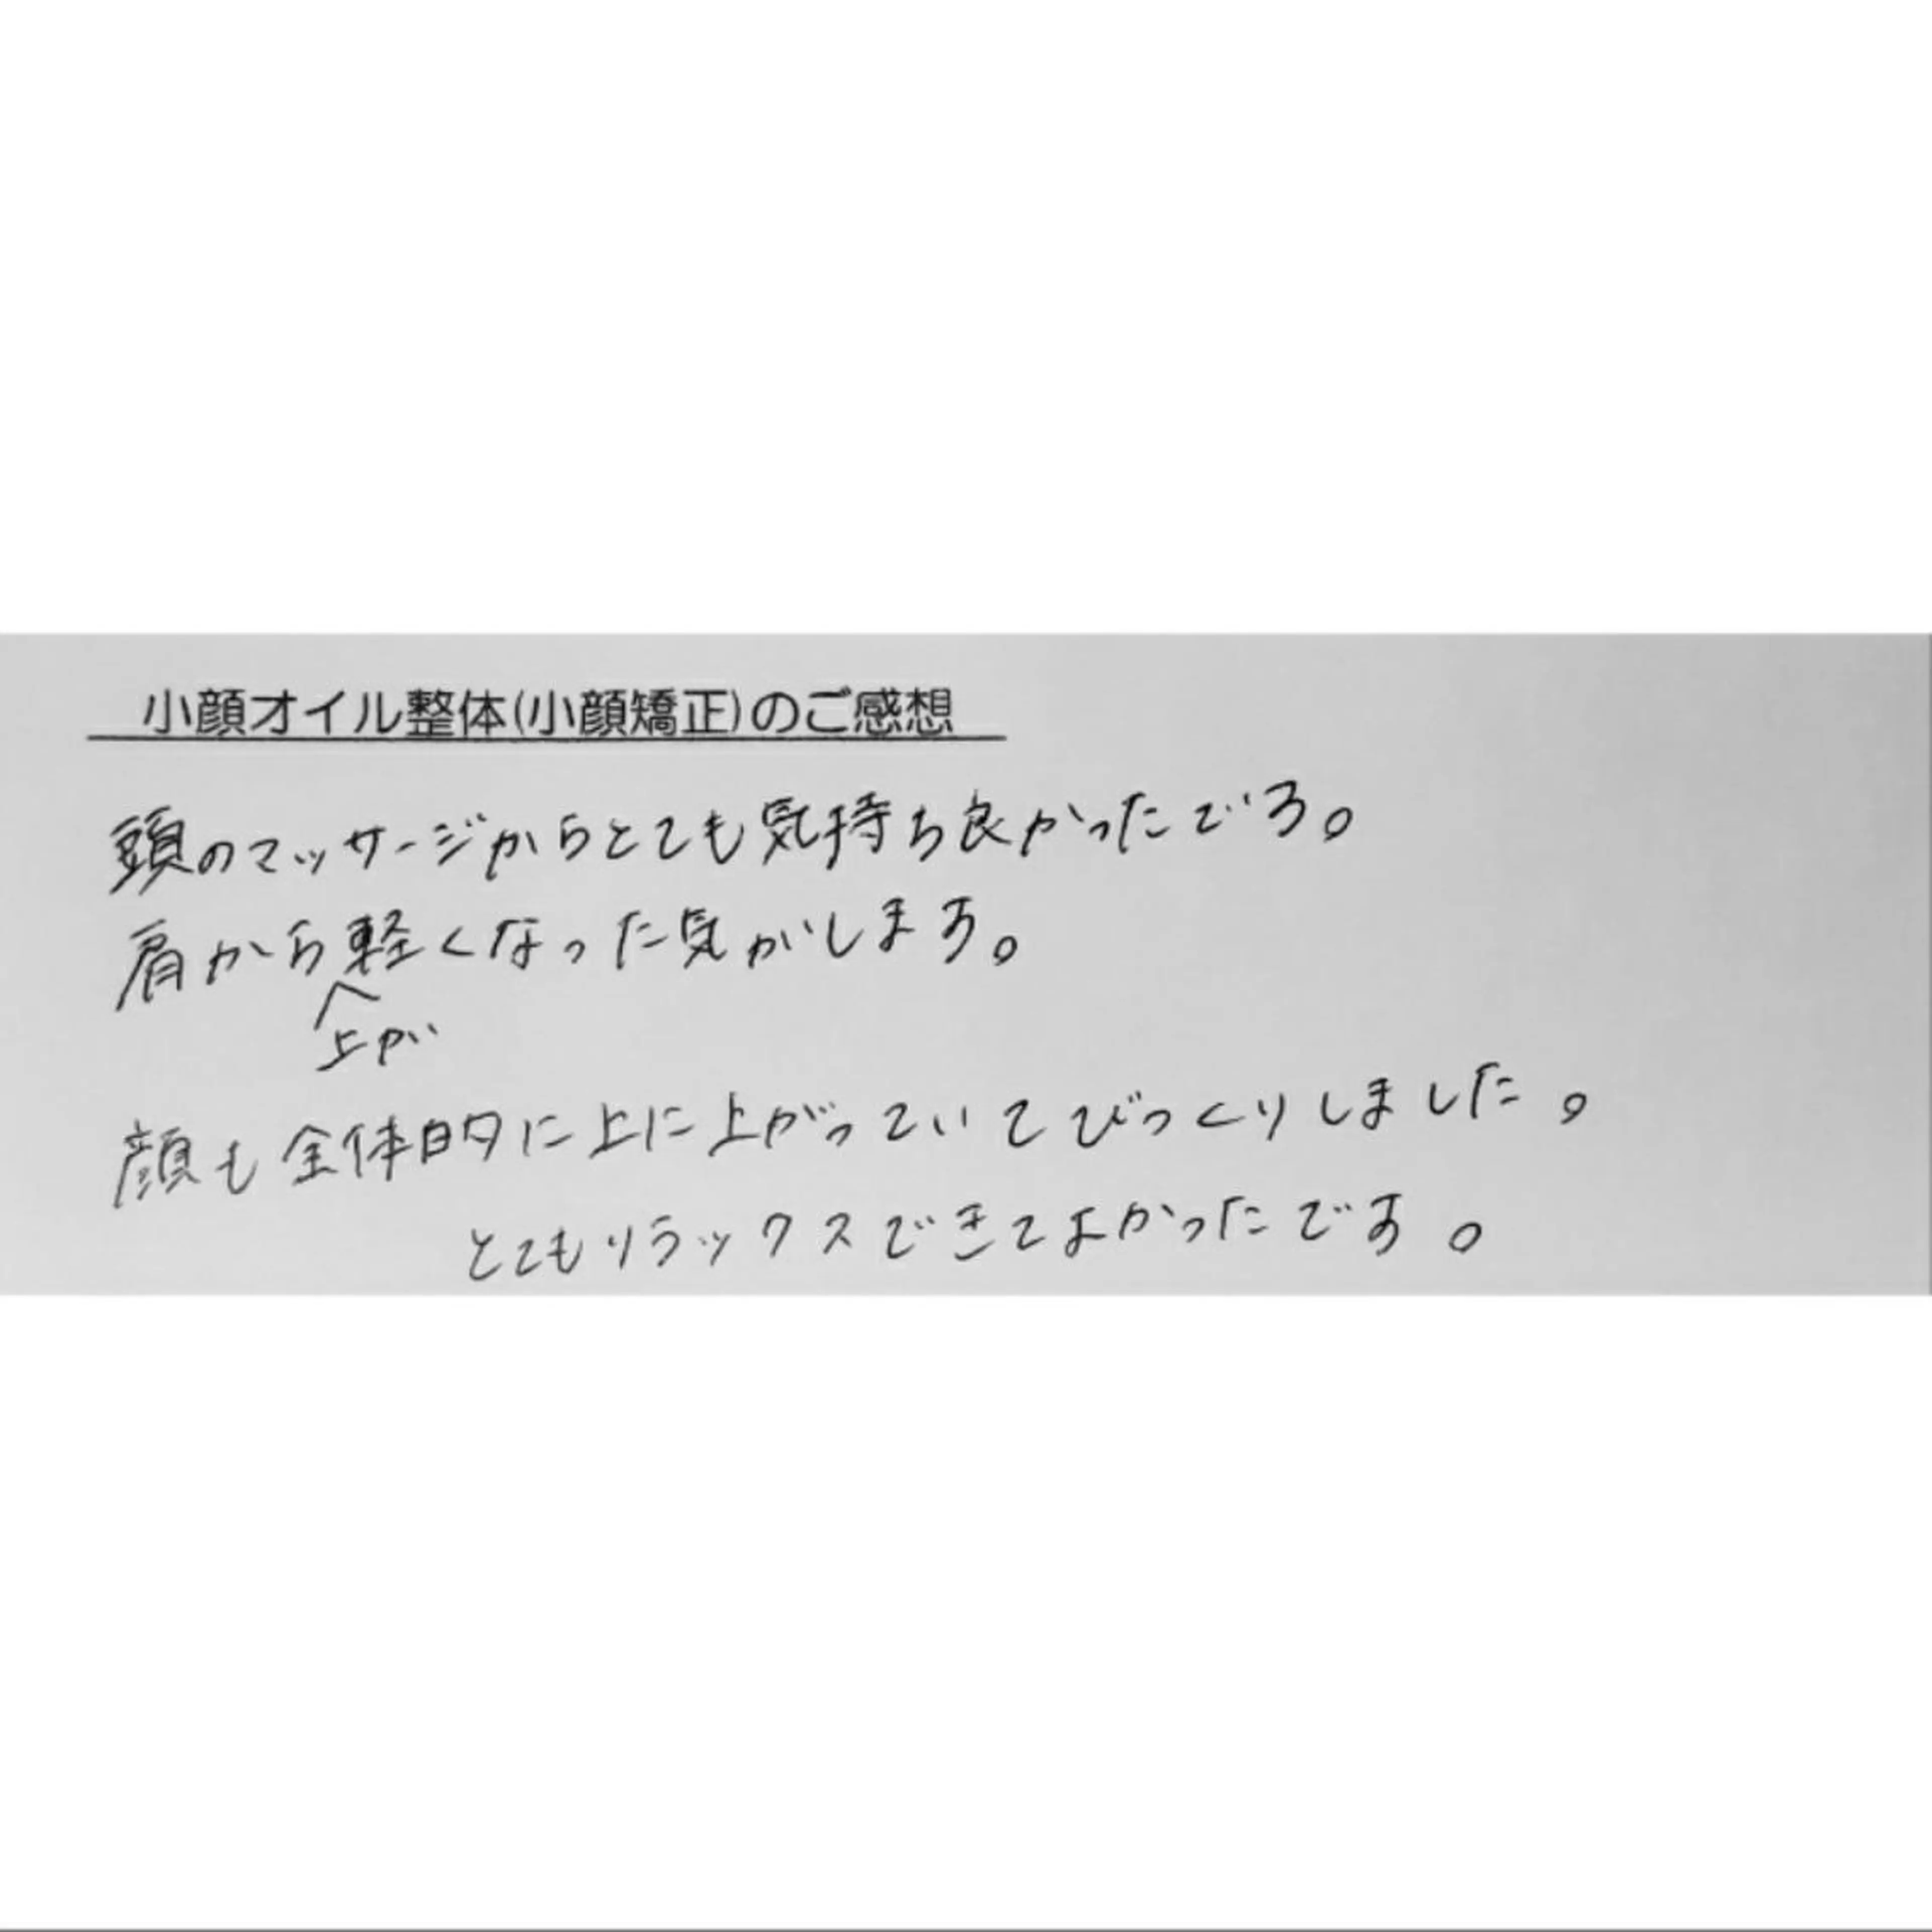 小顔オイル整体(小顔矯正)のご感想
頭のマッサージからとても気持ち良かったです。
肩から軽くなった気がします。
上が
顔も全体的に上に上がっていてびっくりしました。
とてもリラックスできてよかったです。